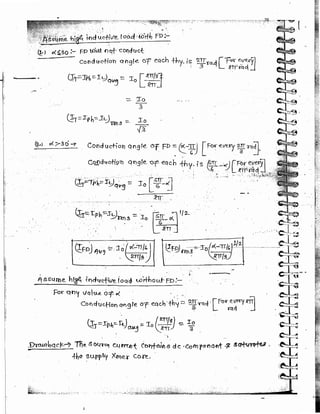 Assume high inductive load with FD:-
Q.1 α≤30 :- FD will not conduct
conduction angle of each thy. is 2π/3 rad [For every 2π rad]
(IT = IPh = IL)avg = Io [2π/3 / 2π]
= Io/3
(IT = IPh = IL)rms = Io/√3
α>30 → Conduction angle of FD = (α-π/6) [For every 2π/3 rad]
Conduction angle of each thy. is (5π/6 - α) [For every 2π rad]
(IT = IPh = IL)avg = Io [5π/6 - α / 2π]
(IT = IPh = IL)rms = Io [5π/6 - α / 2π]^1/2
(IFD)Avg = Io (α-π/6 / 2π/3) (IFD)rms = Io (α-π/6 / 2π/3)^1/2
Assume high inductive load without FD:-
For any value of α
Conduction angle of each thy = 2π/3 rad [For every 2π rad]
(IT = IPh = IL)avg = Io (2π/3 / 2π) = Io/3
Drawback→ The source current contains dc component & saturates
the supply Xmer core.